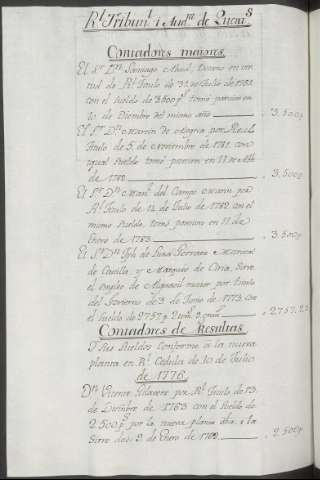 Rl. Tribunl. i Audia. de Cuentas
Contadores mayores
El Sr. Dn. Santiago Abad, Decano en vir
tud de Rl. Titulo de 31 de Julio de 1782
con el sueldo de 3500 ps. tomó posesion en
10 de Diciembre del mismo año 3,500p
El Sr. Dn. Martin de Alegria por Real
Titulo de 5 de Noviembre de 1781 con
igual Sueldo tomó posesion en 11 de
de 1782 3,500p
El Sr. Dn. Manl. del Campo Marin por
Rl. Titulo de 14 de Julio de 1782 con el
mismo Sueldo, tomó posesion en 11 de
Enero de 1783 3,500p
El Sr. Dn. Jph. de Mariscal
de Castilla y Marques de Ciria, sirve
el empleo de mayor por titulo
del Govierno de 3 de Junio de 1773 con
el sueldo de 2757 p. 2757,2
Contadores de Resultas
Sus Sueldos conforme á la nueva
planta en Rl. Cedula de 10 de Julio
de 1776
Dn. Vicente por Rl. Titulo de 13
de Diciembre de 1763 con el sueldo de
2.500 ps. por la nueva planta
Sirve des. 2 de Enero de 2,500p